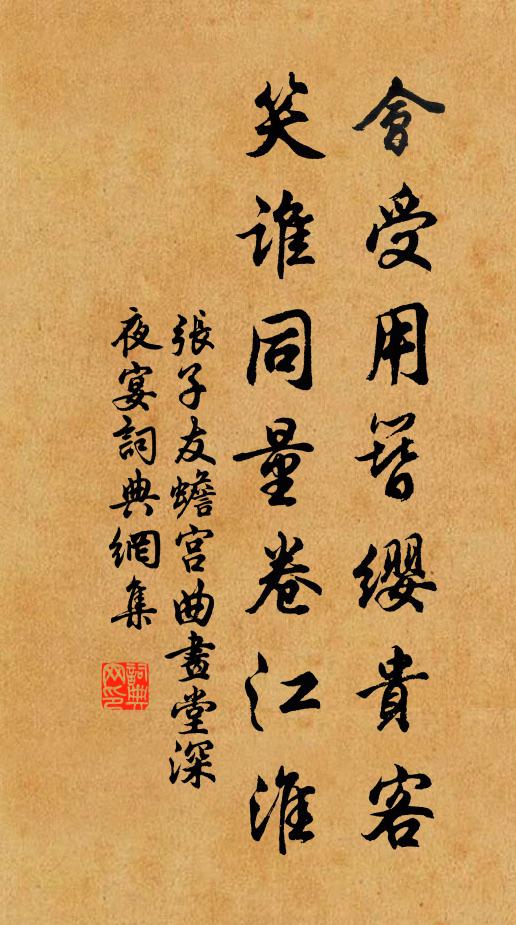 會受用簪纓貴客
笑誰同量卷江淮
張子友蟾宮曲畫堂深
夜宴詞典網集
詞典網印